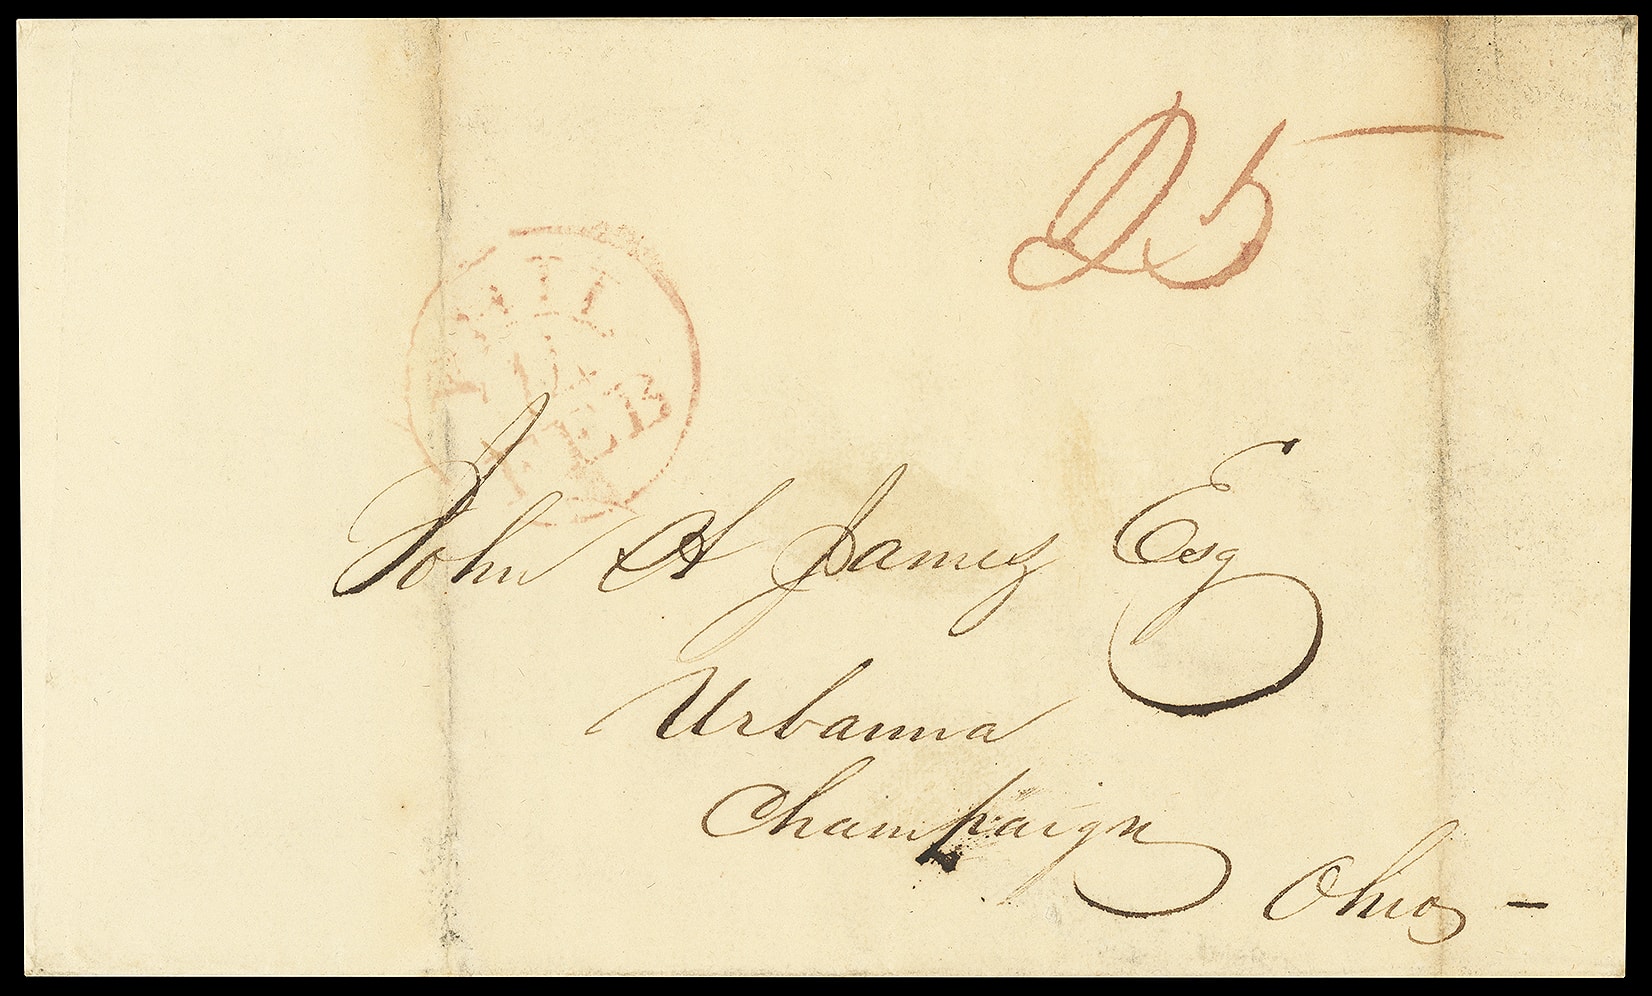 25
PHIL
FEB
John A James Esq
Urbanna
Champaign
Ohio -